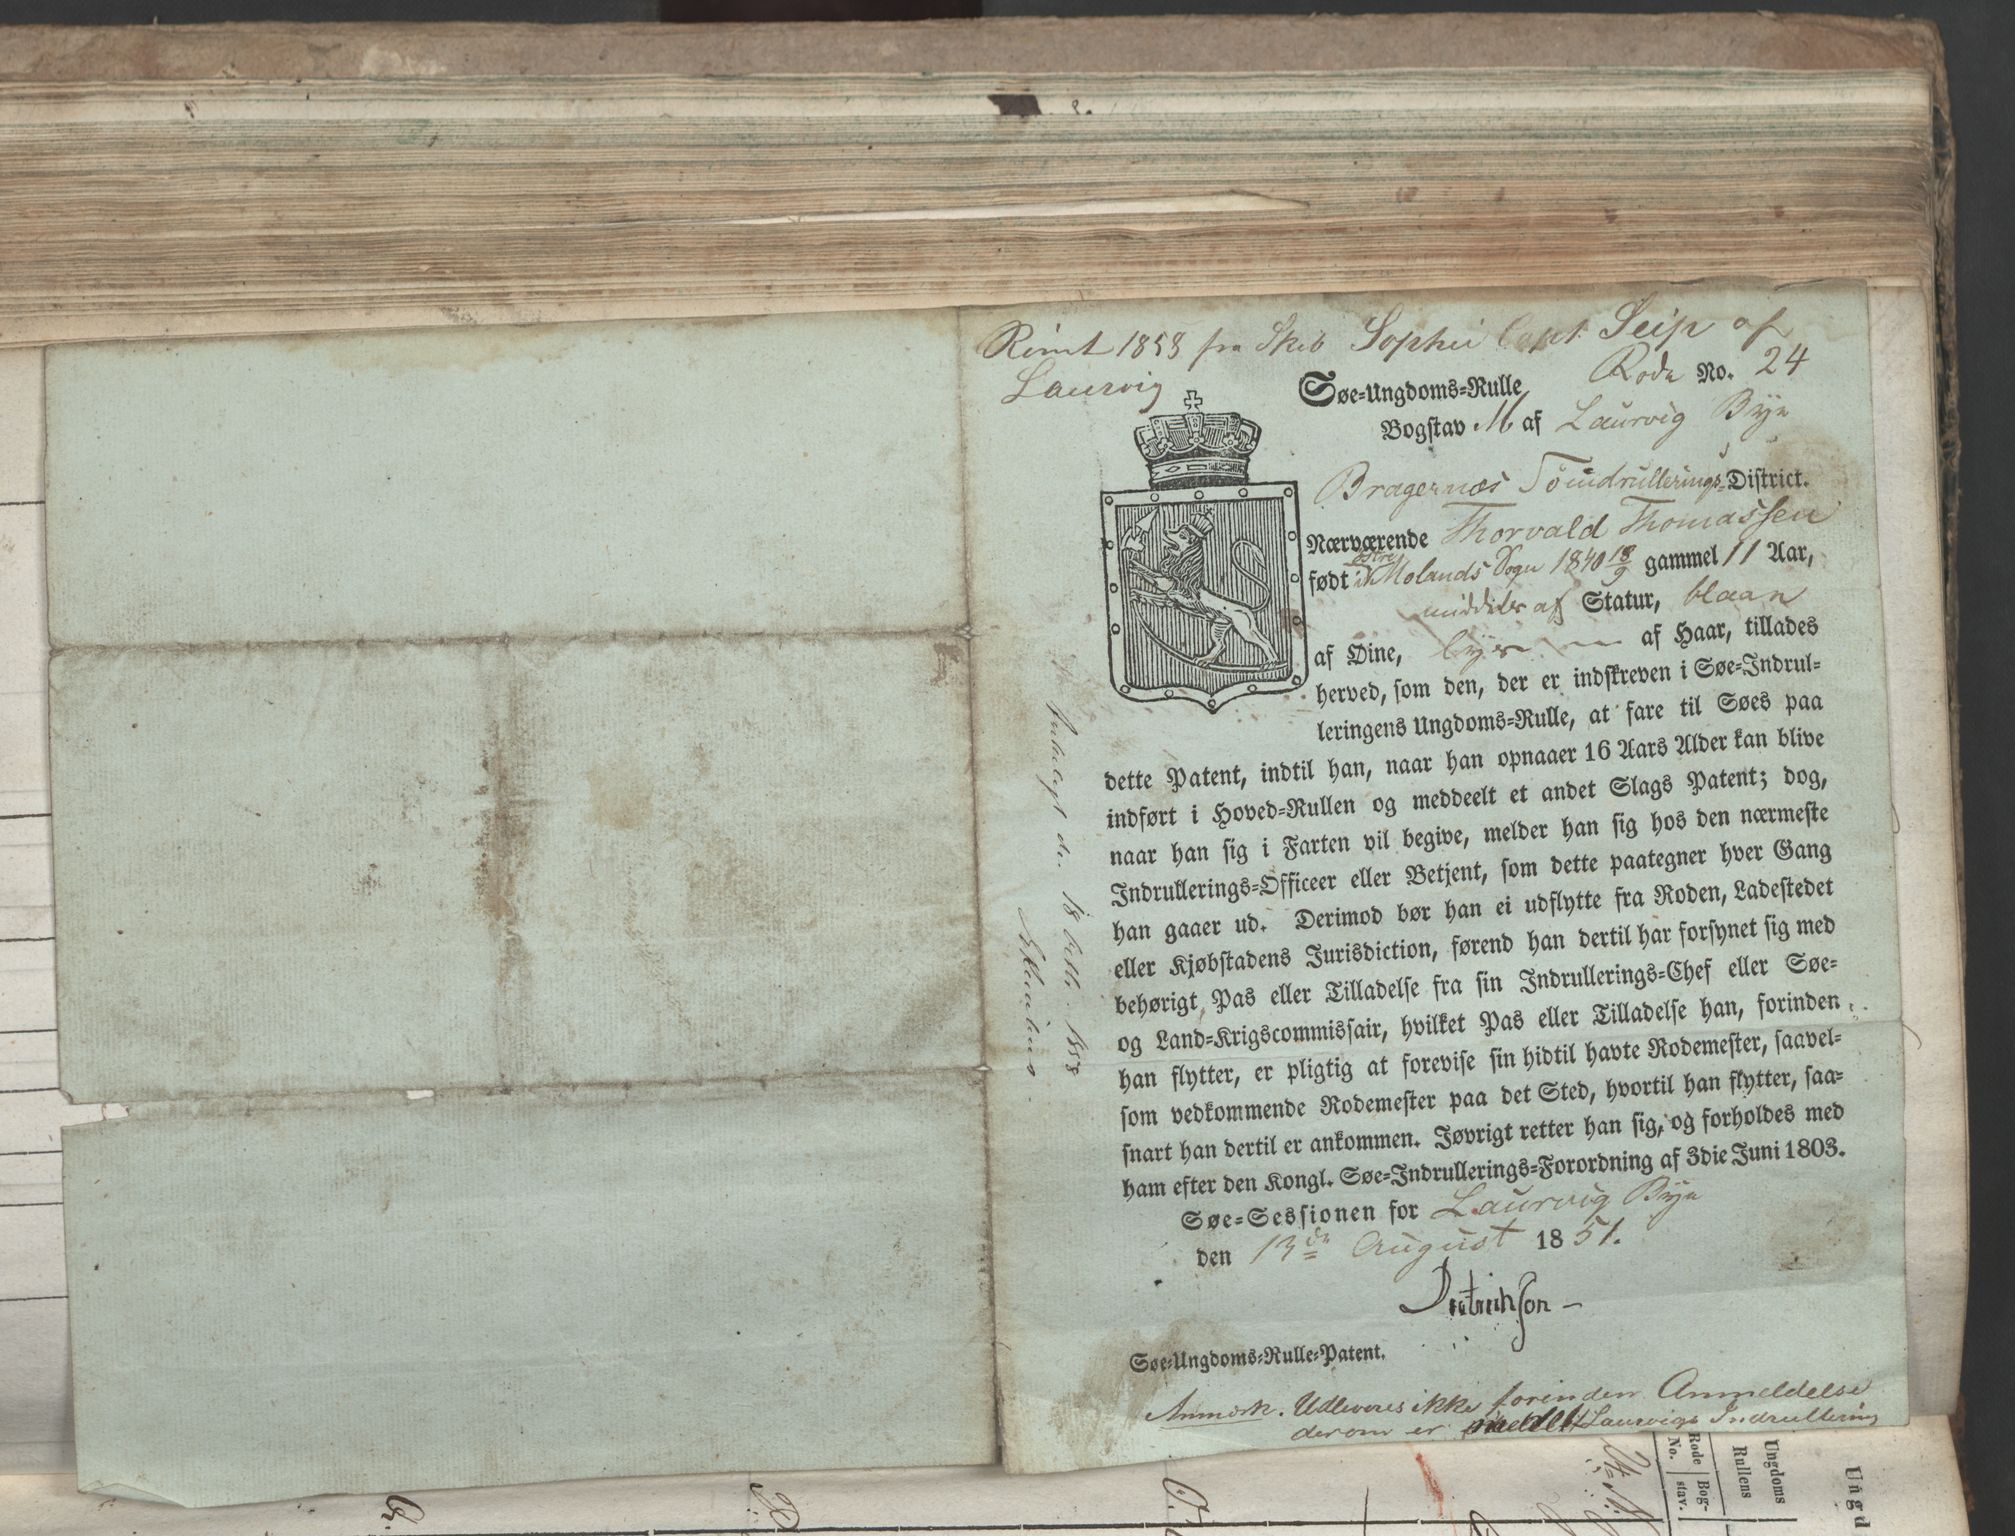 Rømt 1853 fra Skib Sophie Capt. Seip af
Laurvig
Rode No. 24
Søe-Ungdoms-Rulle
Bogstav M af Laurvig Bye
Bragernæs Söindrullerings-District.
Nærværende Thorvald Thomassen
østre
født i Molands Sogn 1840 18/9 gammel 11 Aar,
middels af Statur, blaae
af Øine, lyse af Haar, tillades
herved, som den, der er indskreven i Søe-Indrul-
leringens Ungdoms-Rulle, at fare til Søes paa
dette Patent, indtil han, naar han opnaaer 16 Aars Alder kan blive
indført i Hoved-Rullen og meddeelt et andet Slags Patent; dog,
naar han sig i Farten vil begive, melder han sig hos den nærmeste
Indrullerings-Officeer eller Betjent, som dette paategner hver Gang
han gaaer ud. Derimod bør han ei udflytte fra Roden, Ladestedet
eller Kjøbstadens Jurisdiction, førend han dertil har forsynet sig med
behørigt Pas eller Tilladelse fra sin Indrullerings-Chef eller Søe-
og Land-Krigscommissair, hvilket Pas eller Tilladelse han, forinden
han flytter, er pligtig at forevise sin hidtil havte Rodemester, saavel-
som vedkommende Rodemester paa det Sted, hvortil han flytter, saa-
snart han dertil er ankommen. Iøvrigt retter han sig, og forholdes med
ham efter den Kongl. Søe-Indrullerings-Forordning af 3die Juni 1803.
Søe-Sessionen for Laurvig Bye
den 13de August 1851.
Dietrichson
Søe-Ungdoms-Rulle-Patent.
Anmærk. Udleveres ikke forinden Anmeldelse
derom er meldt Laurvigs Indrullering
18 1853
Ungdoms
Rullens
Rode No.
Bog-
stav.
Ungd